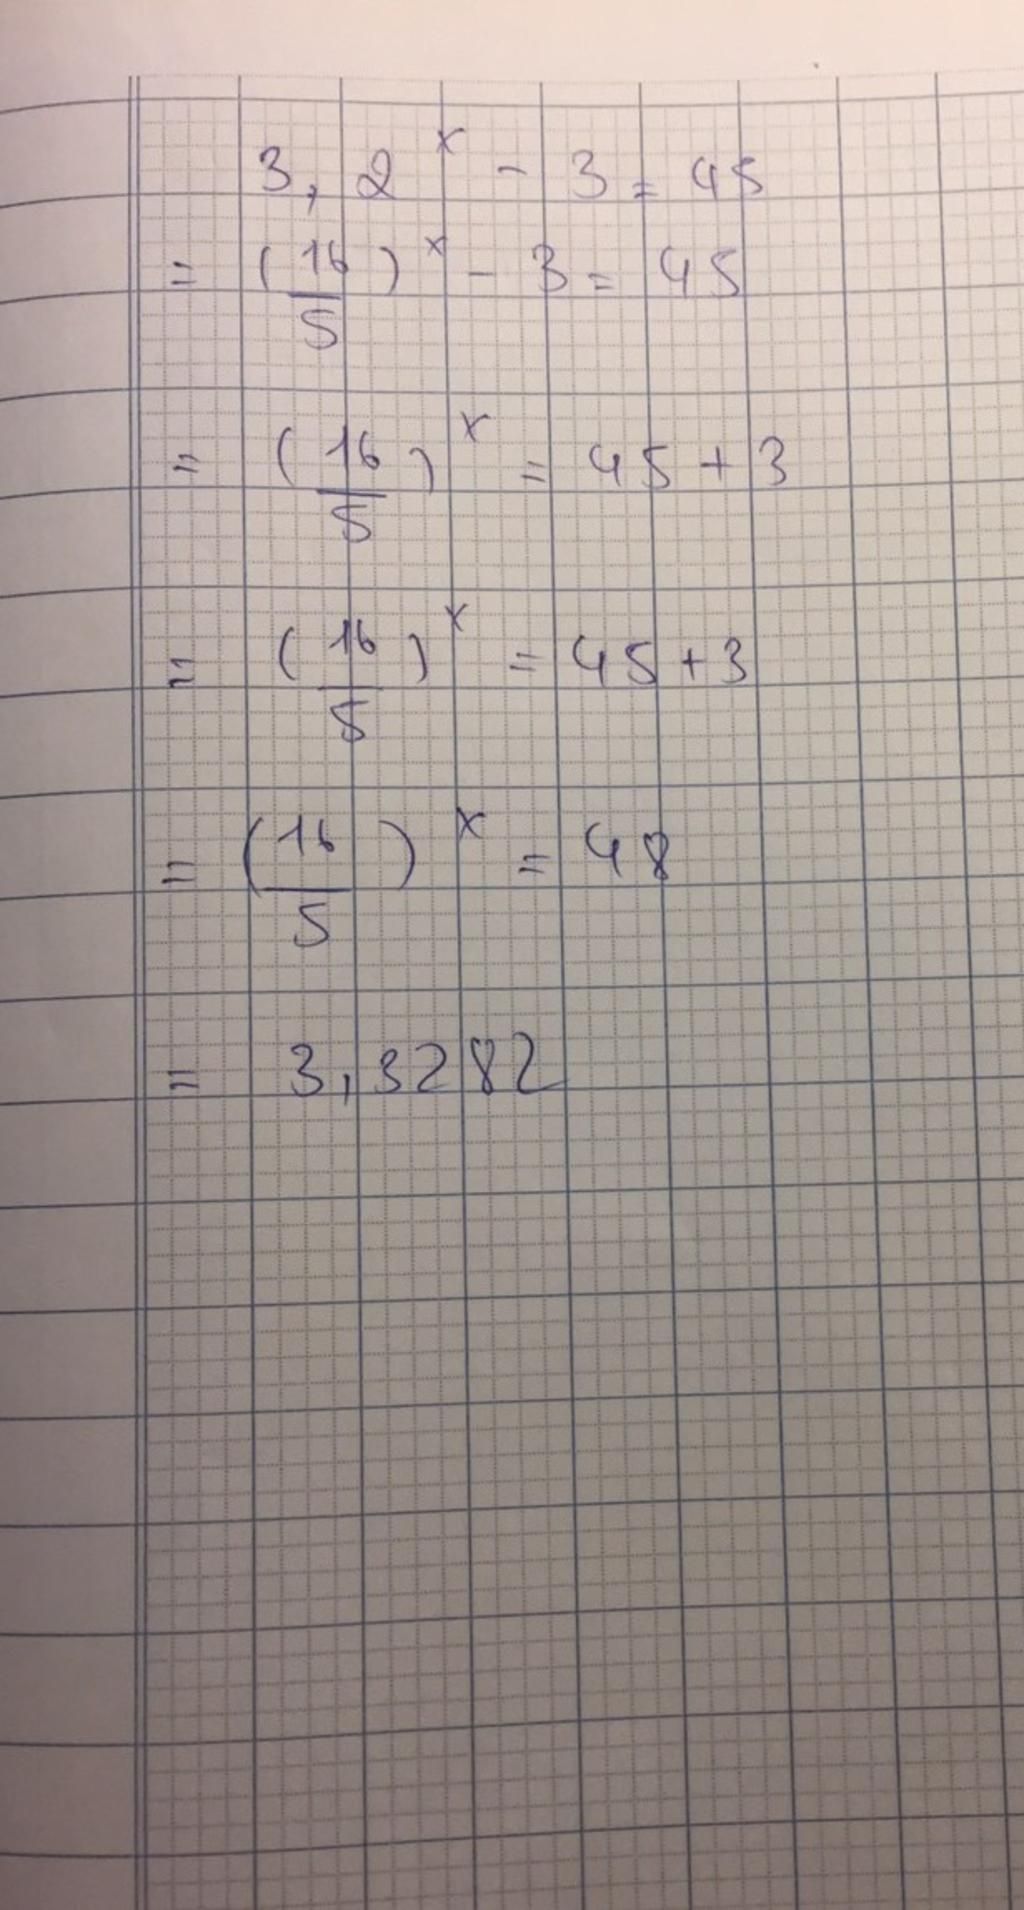 3,2^x - 3 = 45
= (16/5)^x - 3 = 45
= (16/5)^x = 45 + 3
= (16/5)^x = 45 + 3
= (16/5)^x = 48
= 3,3282